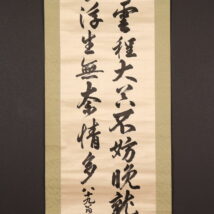 雲程大不妨晩就
浮生無奈情多